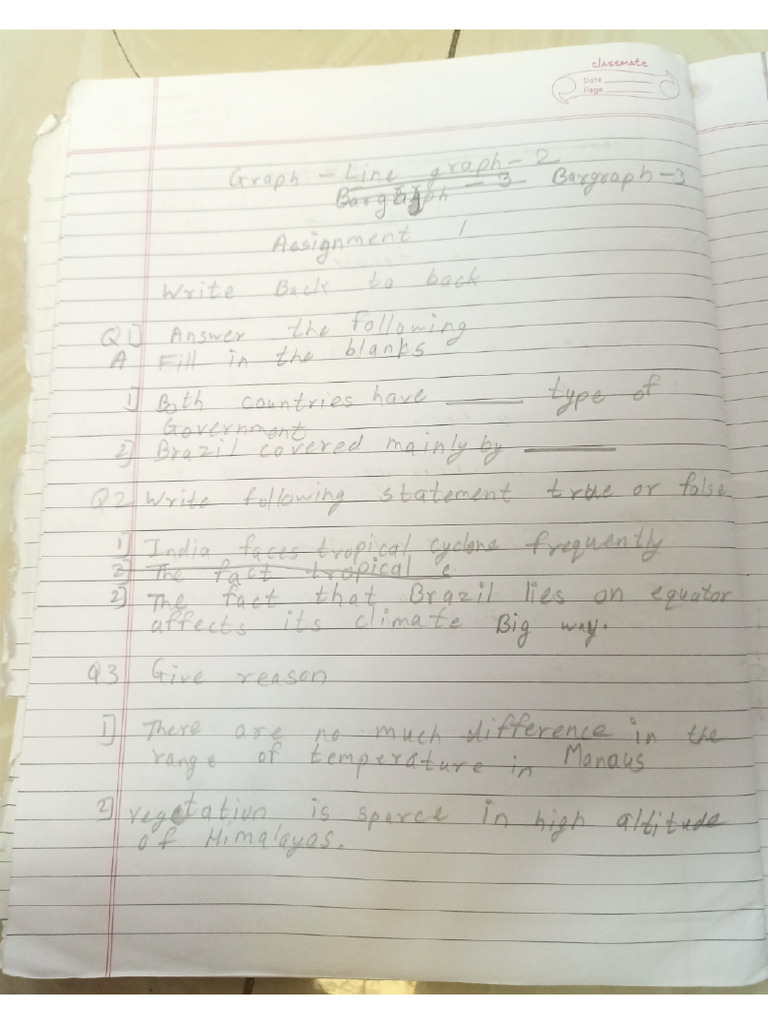 classmate
Date
Page
Graph - Line graph - 2
Bargraph - 3 Bargraph - 3
Assignment 1
Write Back to back
Q1] Answer the following
A Fill in the blanks
1] Both countries have ______ type of
Government
2] Brazil covered mainly by ______
Q2 Write following statement true or false
1] India faces tropical cyclone frequently
2] The fact tropical c
2] The fact that Brazil lies on equator
affects its climate Big way.
Q3 Give reason
1] There are no much difference in the
range of temperature in Manaus
2] vegetation is sparce in high altitude
of Himalayas.